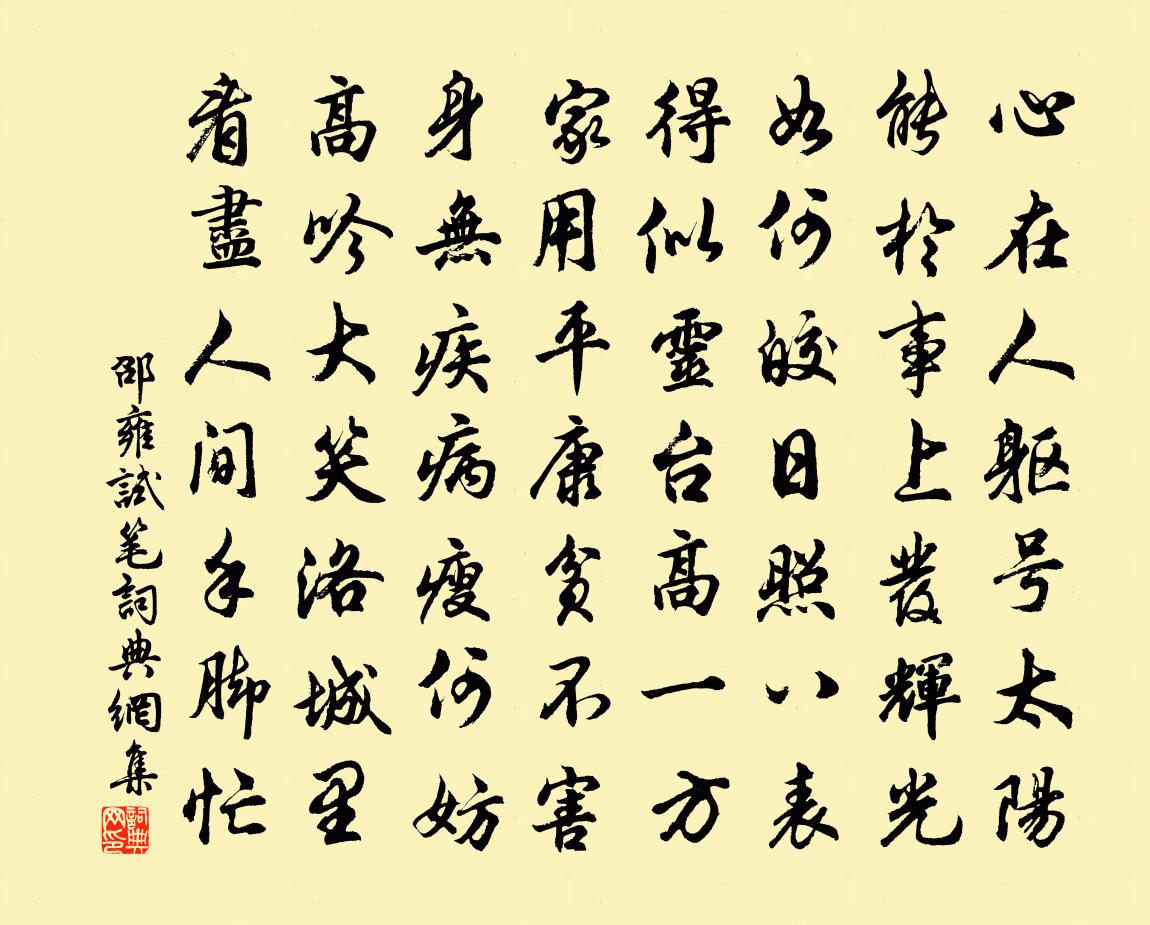 心在人躯号太陽
能於事上發輝光
如何皎日照八表
得似靈台高一方
家用平康貧不害
身無疾病瘦何妨
高吟大笑洛城里
看盡人间手脚忙
邵雍試笔詞典網集
詞典网印